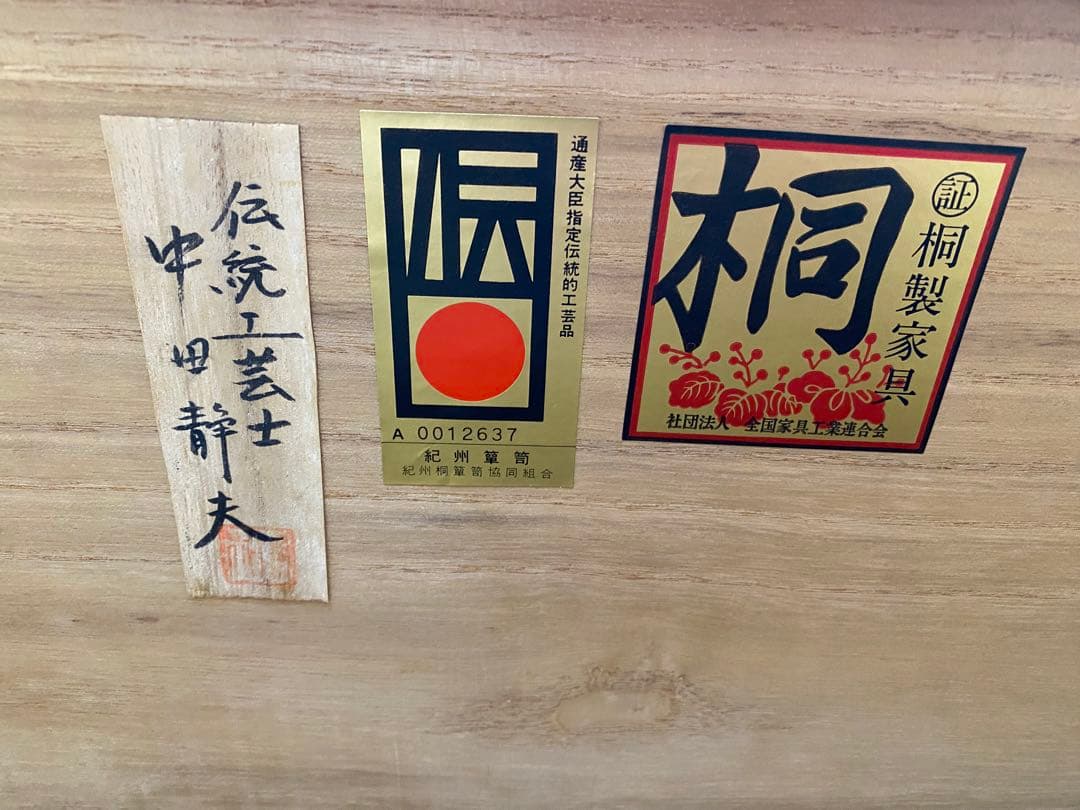 伝統工芸士
中田静夫
伝
通産大臣指定伝統的工芸品
A 0012637
紀州簞笥
紀州桐簞笥協同組合
桐
証
桐製家具
社団法人 全国家具工業連合会